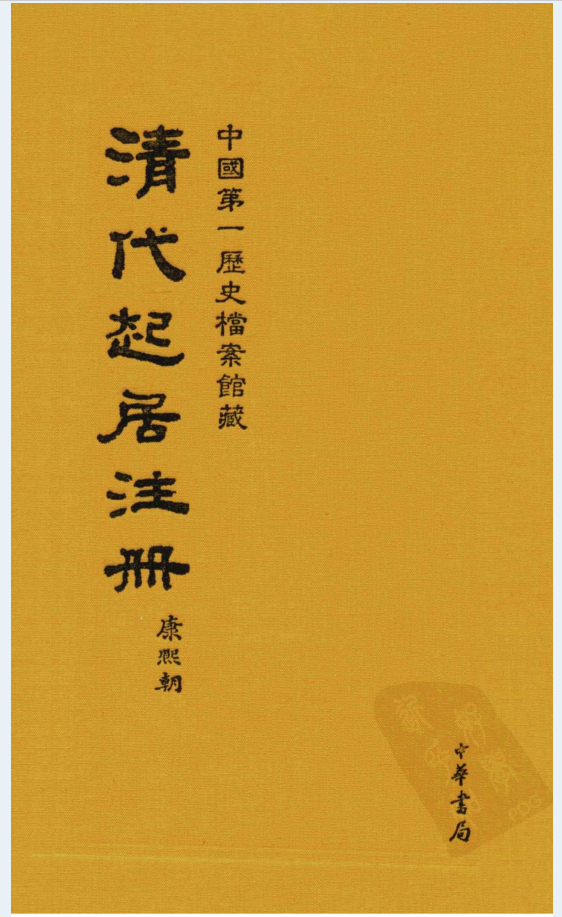 中國第一歷史檔案館藏
清代起居注册
康熙朝
中華書局
PDG